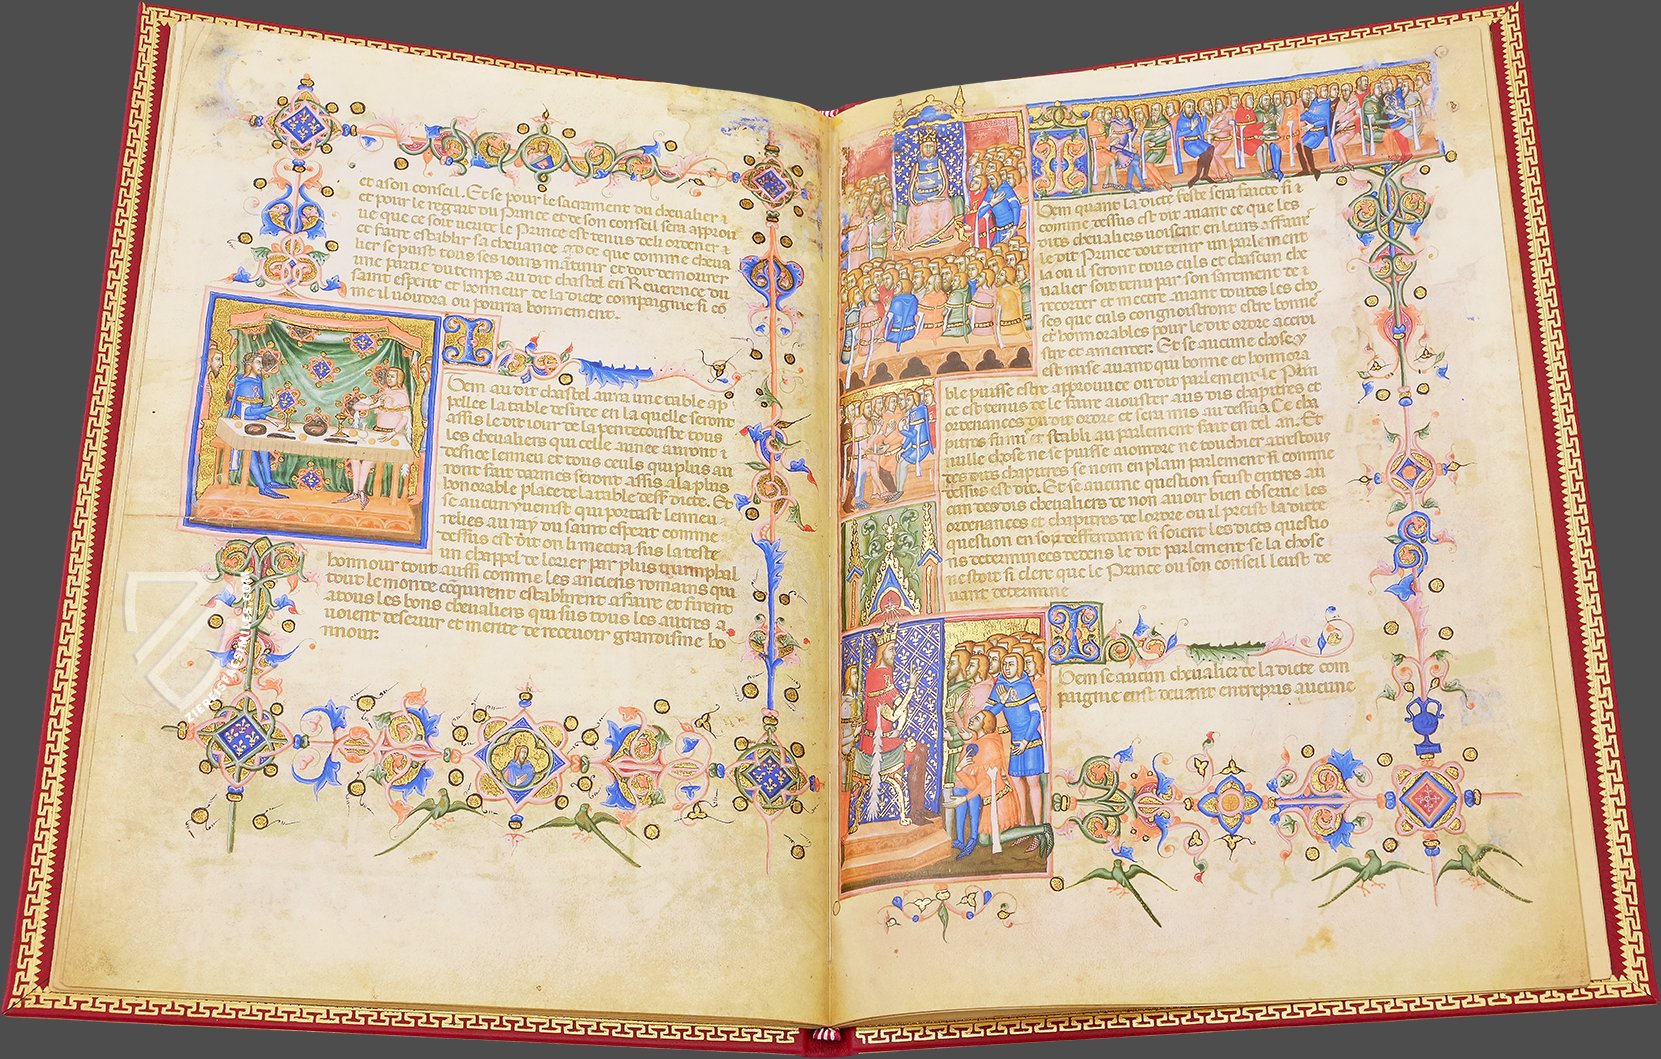 et a son conseil. Et se pour le sacrament du chevalier i
et pour le regart du Prince et de son conseil sera approu
ve que ce soit verite le Prince est tenus de li ordener et
et faire establir sa chevance
lier se puist tous ses iours maītenir et doit demourer
une partie du temps au dit chastel en Reverence du
saint esperit et honneur de la dicte compaignie si cō
me il voudra ou pourra bonnement.
Item au dit chastel aura une table ap
pellee la table desiree en la quelle seront
assis le dit iour de la pentecouste tous
les chevaliers qui celle annee auront
desnoe lenneu et tous ceuls qui plus au
ront fait darmes seront assis a la plus
honorable place de la table dess dicte. Et
se aucun y venist qui portast lenneu
relies au ray du saint esperit comme
dessus est dit on li mectra sus la teste
un chappel de lorier par plus triumphal
honnour tout aussi comme les anciens romains qui
tout le monde cōquirent establirent a faire et firent
a tous les bons chevaliers qui sus tous les autres a
voient deservir et merite de recevoir grandisme ho
nnour.
Item quant la dicte feste sera faicte si
comme dessus est dit avant ce que les
dits chevaliers voisent en leurs affaire
le dit Prince doit tenir un parlement
la ou il seront tous euls et chascun che
valier soit tenu par son sarement
recorder et mectre avant toutes les cho
ses que euls congnoistront estre bonne
et honnorables pour le dit ordre accroi
stre et amender. Et se aucune chose y
est mise avant qui bonne et honnora
ble puisse estre approuvee ou dit parlement le Prin
ce est tenus de le faire aiouster aus dis chapitres et
ordenances du dit ordre ce sera mis au dessus. Ce cha
pitres furent establi au parlement fait en tel an. Et
nulle chose ne se puisse
des dits chapitres se nom en plain parlement si comme
dessus est dit. Et se aucune question feust entre au
can des dis chevaliers de non avoir bien observe les
ordenances et chapitres de lordre ou il preist la dicte
question en soy deffentant si soient les dicts questio
ns determinees dedens le dit parlement se la chose
nestoit si clere que le Prince ou son conseil leust de
vant determine
Item se aucun chevalier de la dicte com
paignie eust devant entrepris aucune
ZIEREIS FACSIMILES.COM